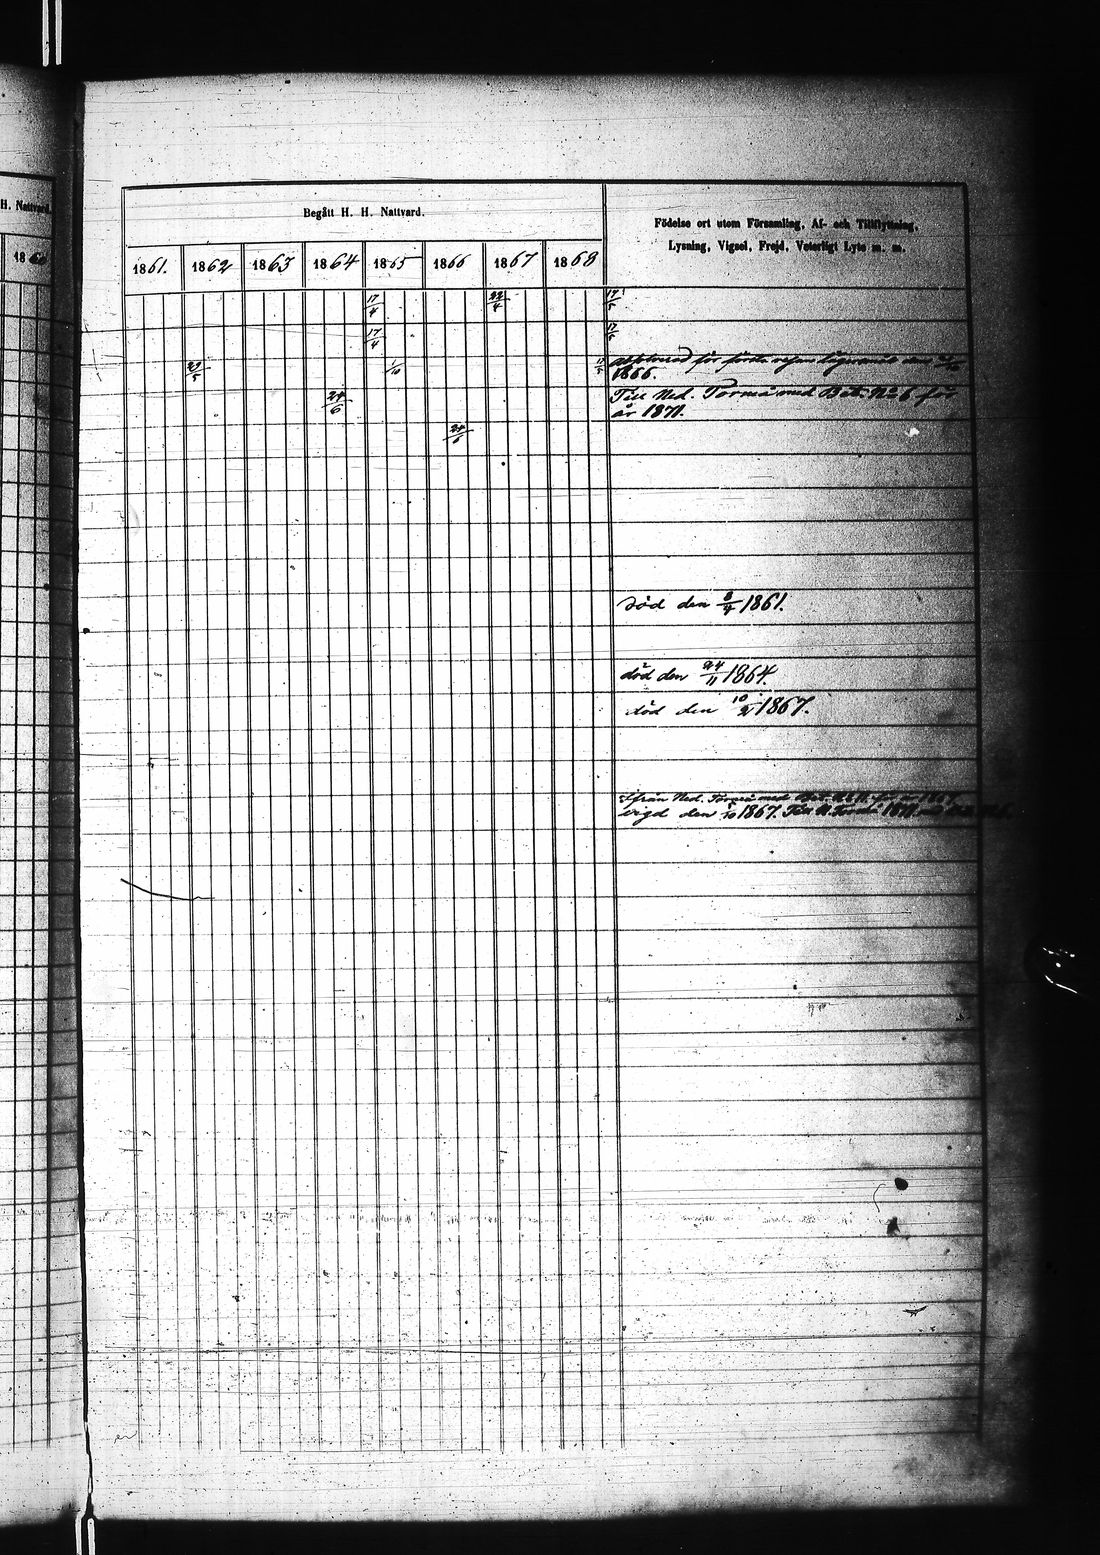 H. Nattvard.
1860
Begått H. H. Nattvard.
Födelse ort utom Församling, Af- och Tillflyttning,
Lysning, Vigsel, Frejd, Veterligt Lyte m. m.
1861. 1862 1863 1864 1865 1866 1867 1868
17/4 22/4 17/5
17/4 17/5
25/5 1/10 för första resan den
1866.
24/6 Till Ned. Torneå med Bet. No 6 för
år 1871.
24/6
död den 8/4 1861.
död den 24/11 1864.
död den 10/2 1867.
Ifrån Ned. Torneå med Bet.
vigd den 1867. Till N. Torneå